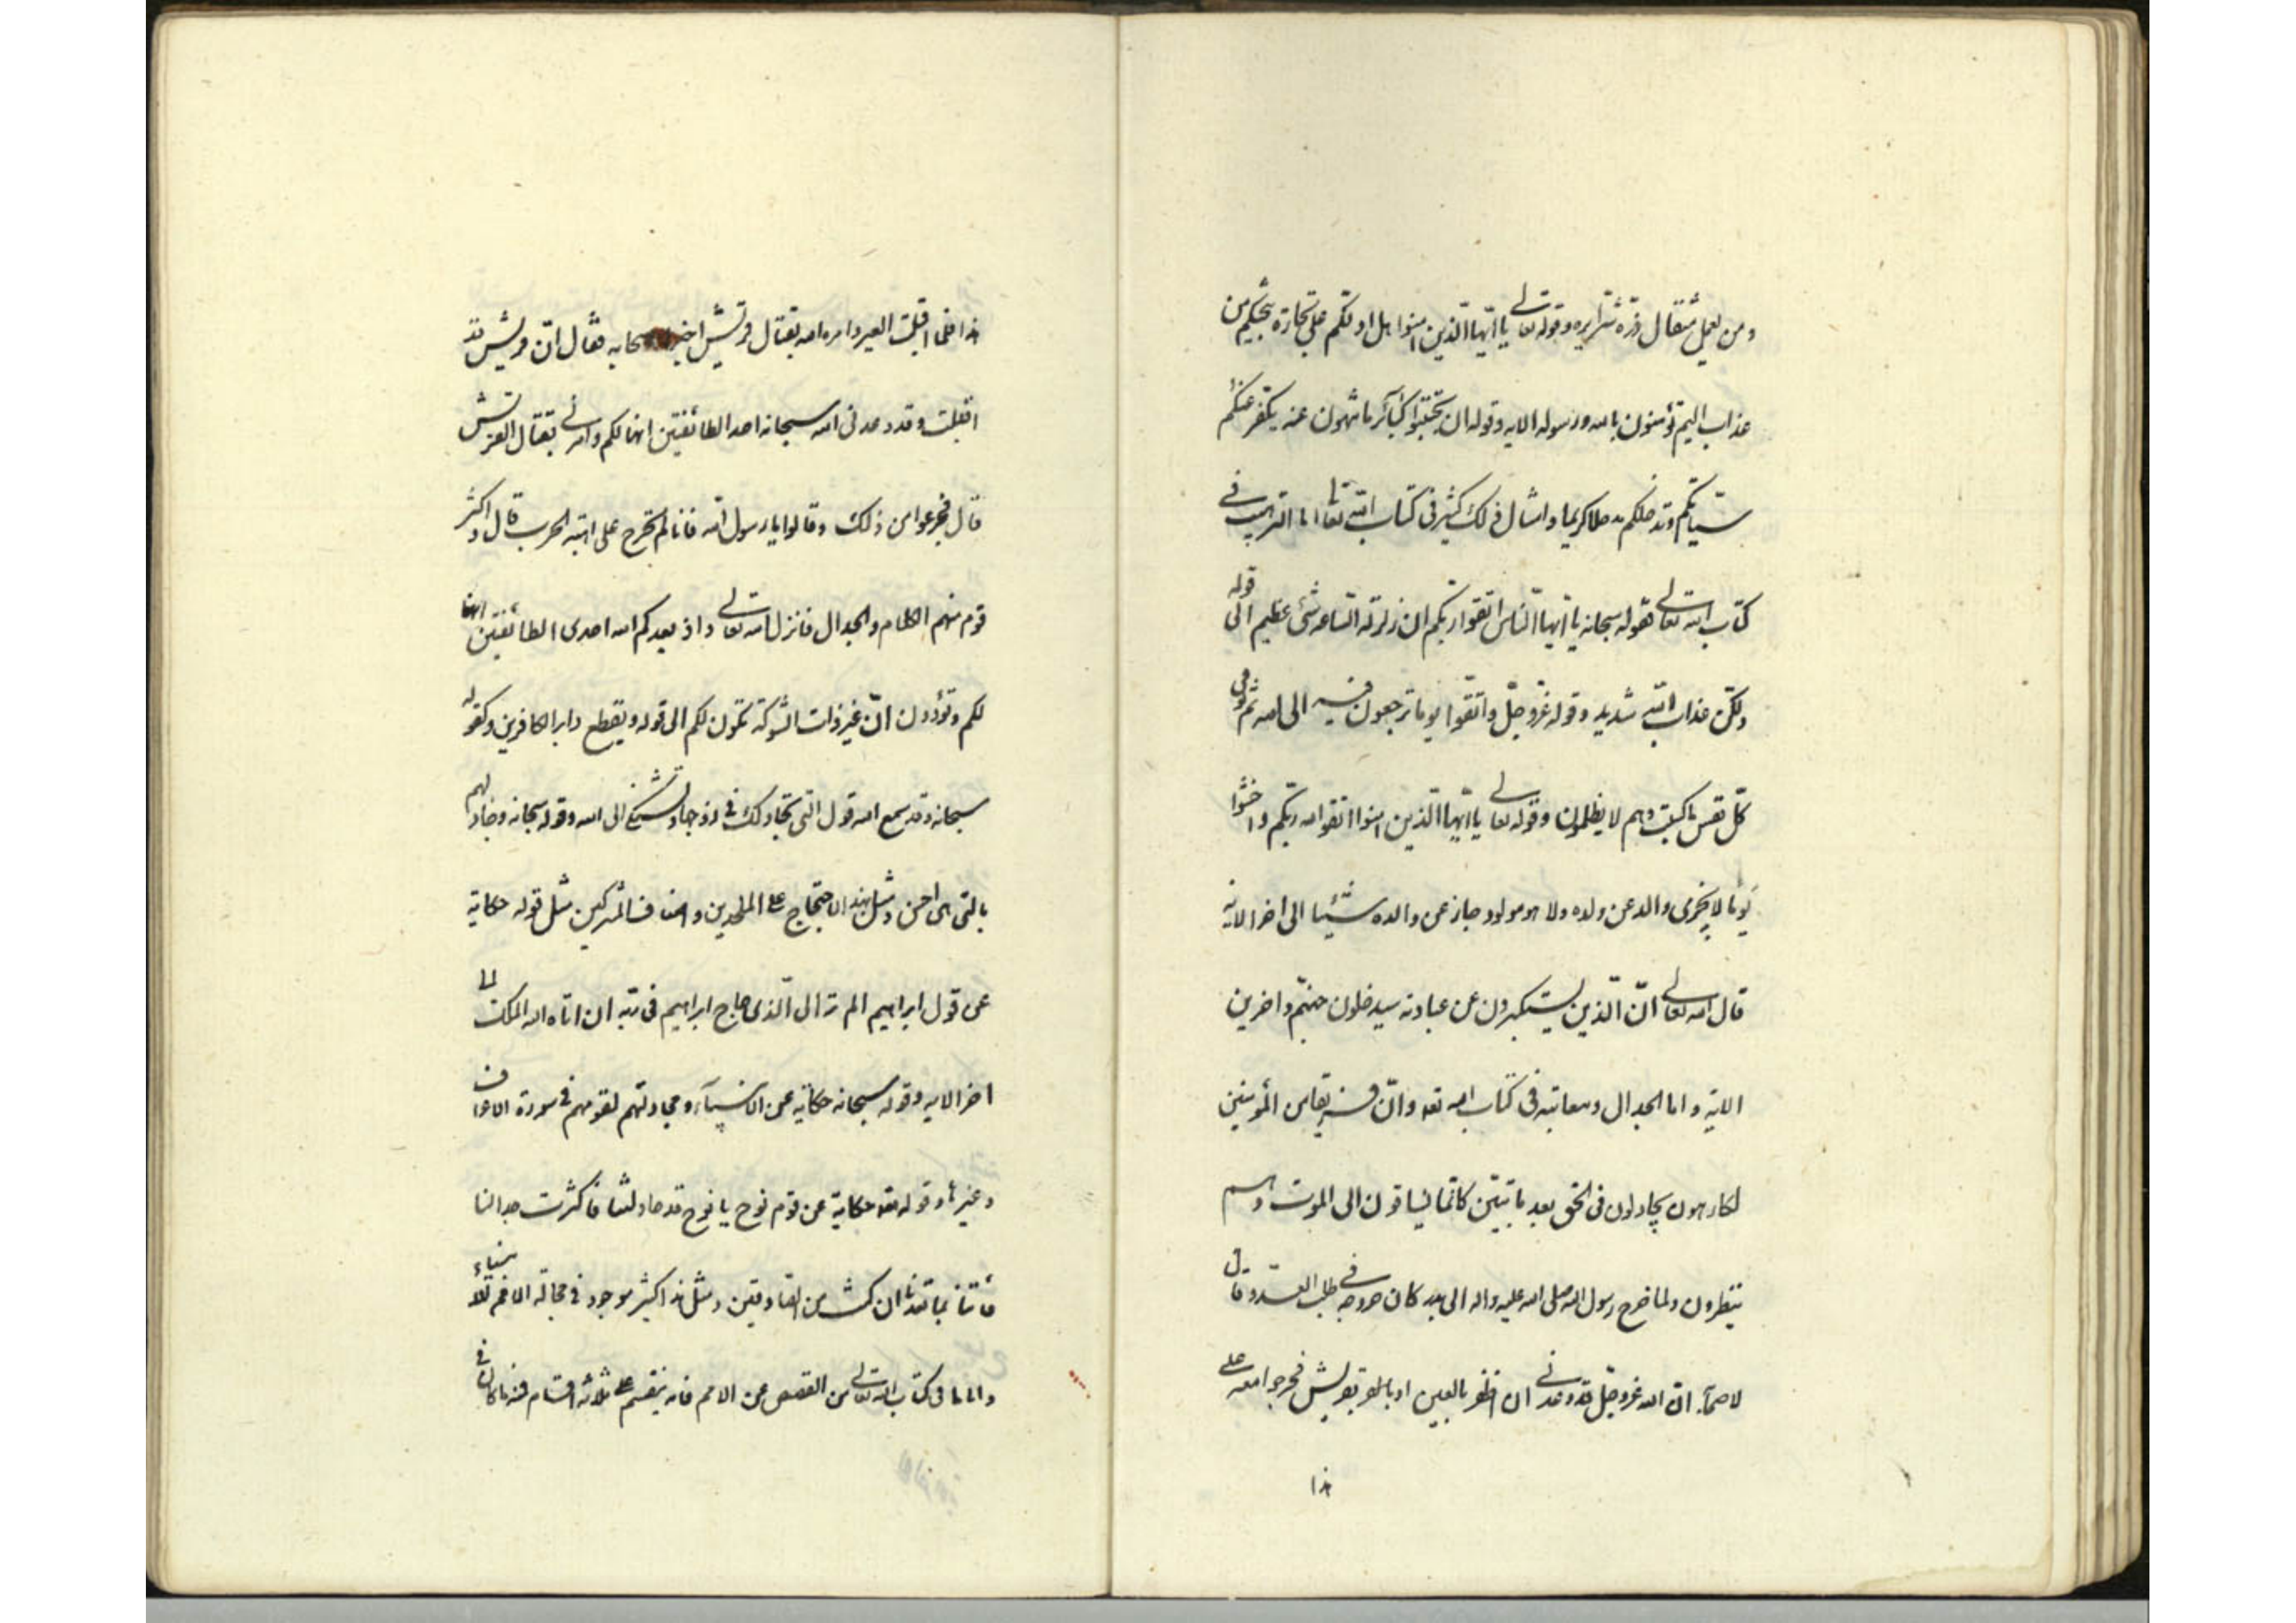 ومن يعمل مثقال ذرة شرا يره وقوله تعالى يا ايّها الّذين امنوا هل ادلّكم على تجارة تنجيكم من
عذاب اليم تؤمنون بالله ورسوله الايه وقوله ان تجتنبوا كبآئر ما تنهون عنه يكفّر عنكم
سيّئاتكم وندخلكم مدخلا كريما وامثال ذلك كثير فى كتاب الله تعا اما الترهيب فى
كتاب الله تعالى فقوله سبحانه يا ايّها النّاس اتّقوا ربّكم ان زلزلة السّاعة شئ عظيم الى قوله
ولكنّ عذاب الله شديد وقوله عزّ وجلّ واتّقوا يوما ترجعون فيه الى الله ثم توفى
كلّ نفس ما كسبت وهم لا يظلمون وقوله تعالى يا ايّها الّذين امنوا اتقوا الله ربّكم واخشوا
يوما لا يجزى والد عن ولده ولا هو مولود جاز عن والده شيئا الى اخر الاية
قال الله تعالى انّ الّذين يستكبرون عن عبادته سيدخلون جهنّم داخرين
الاية واما الجدال ومعانيه فى كتاب الله تعه وانّ فريقا من المؤمنين
لكارهون يجادلون فى الحق بعد ما تبيّن كانّما يساقون الى الموت وهم
ينظرون ولما خرج رسول الله صلى الله عليه واله الى بدر كان خروجه فى طلب العدو وقال
لاصحابه انّ الله عزّ وجلّ قد وعدنى ان اظفر بالعير او بقريش فخرجوا معه على
هذا
هذا فلما اقبلت العير وامره الله بقتال قريش اخبر اصحابه فقال انّ قريش قد
اقبلت وقد وعدنى الله سبحانه احد الطائفتين انها لكم وامرنى بقتال القريش
قال فجزعوا من ذلك وقالوا يا رسول الله فانا لم نخرج على اهبة الحرب قال واكثر
قوم منهم الكلام والجدال فانزل الله تعالى واذ يعدكم الله احدى الطائفتين انها
لكم وتودون انّ غير ذات الشّوكة تكون لكم الى قوله ويقطع دابر الكافرين وكقوله
سبحانه وقد سمع الله قول التى تجادلك فى زوجها وتشتكى الى الله وقوله سبحانه وجادلهم
بالتى هى احسن ومثل هذه الاحتجاج على الملحدين واصناف المشركين مثل قوله حكاية
عن قول ابراهيم الم تر الى الّذى حاج ابراهيم فى ربّه ان اتاه الله الملك الى
اخر الايه وقوله سبحانه حكاية عن الانبيآء ومجادلتهم لقومهم فى سورة الاعراف
وغيرها وقوله تعه حكاية عن قوم نوح يا نوح قد جادلتنا فاكثرت جدالنا
فأتنا بما تعدنا ان كنت من الصادقين ومثل هذا كثير موجود فى مجادلة الامم للانبياء
واما ما فى كتاب الله تعالى من القصص عن الامم فانه ينقسم على ثلاثة اقسام فمنه ما كان فى